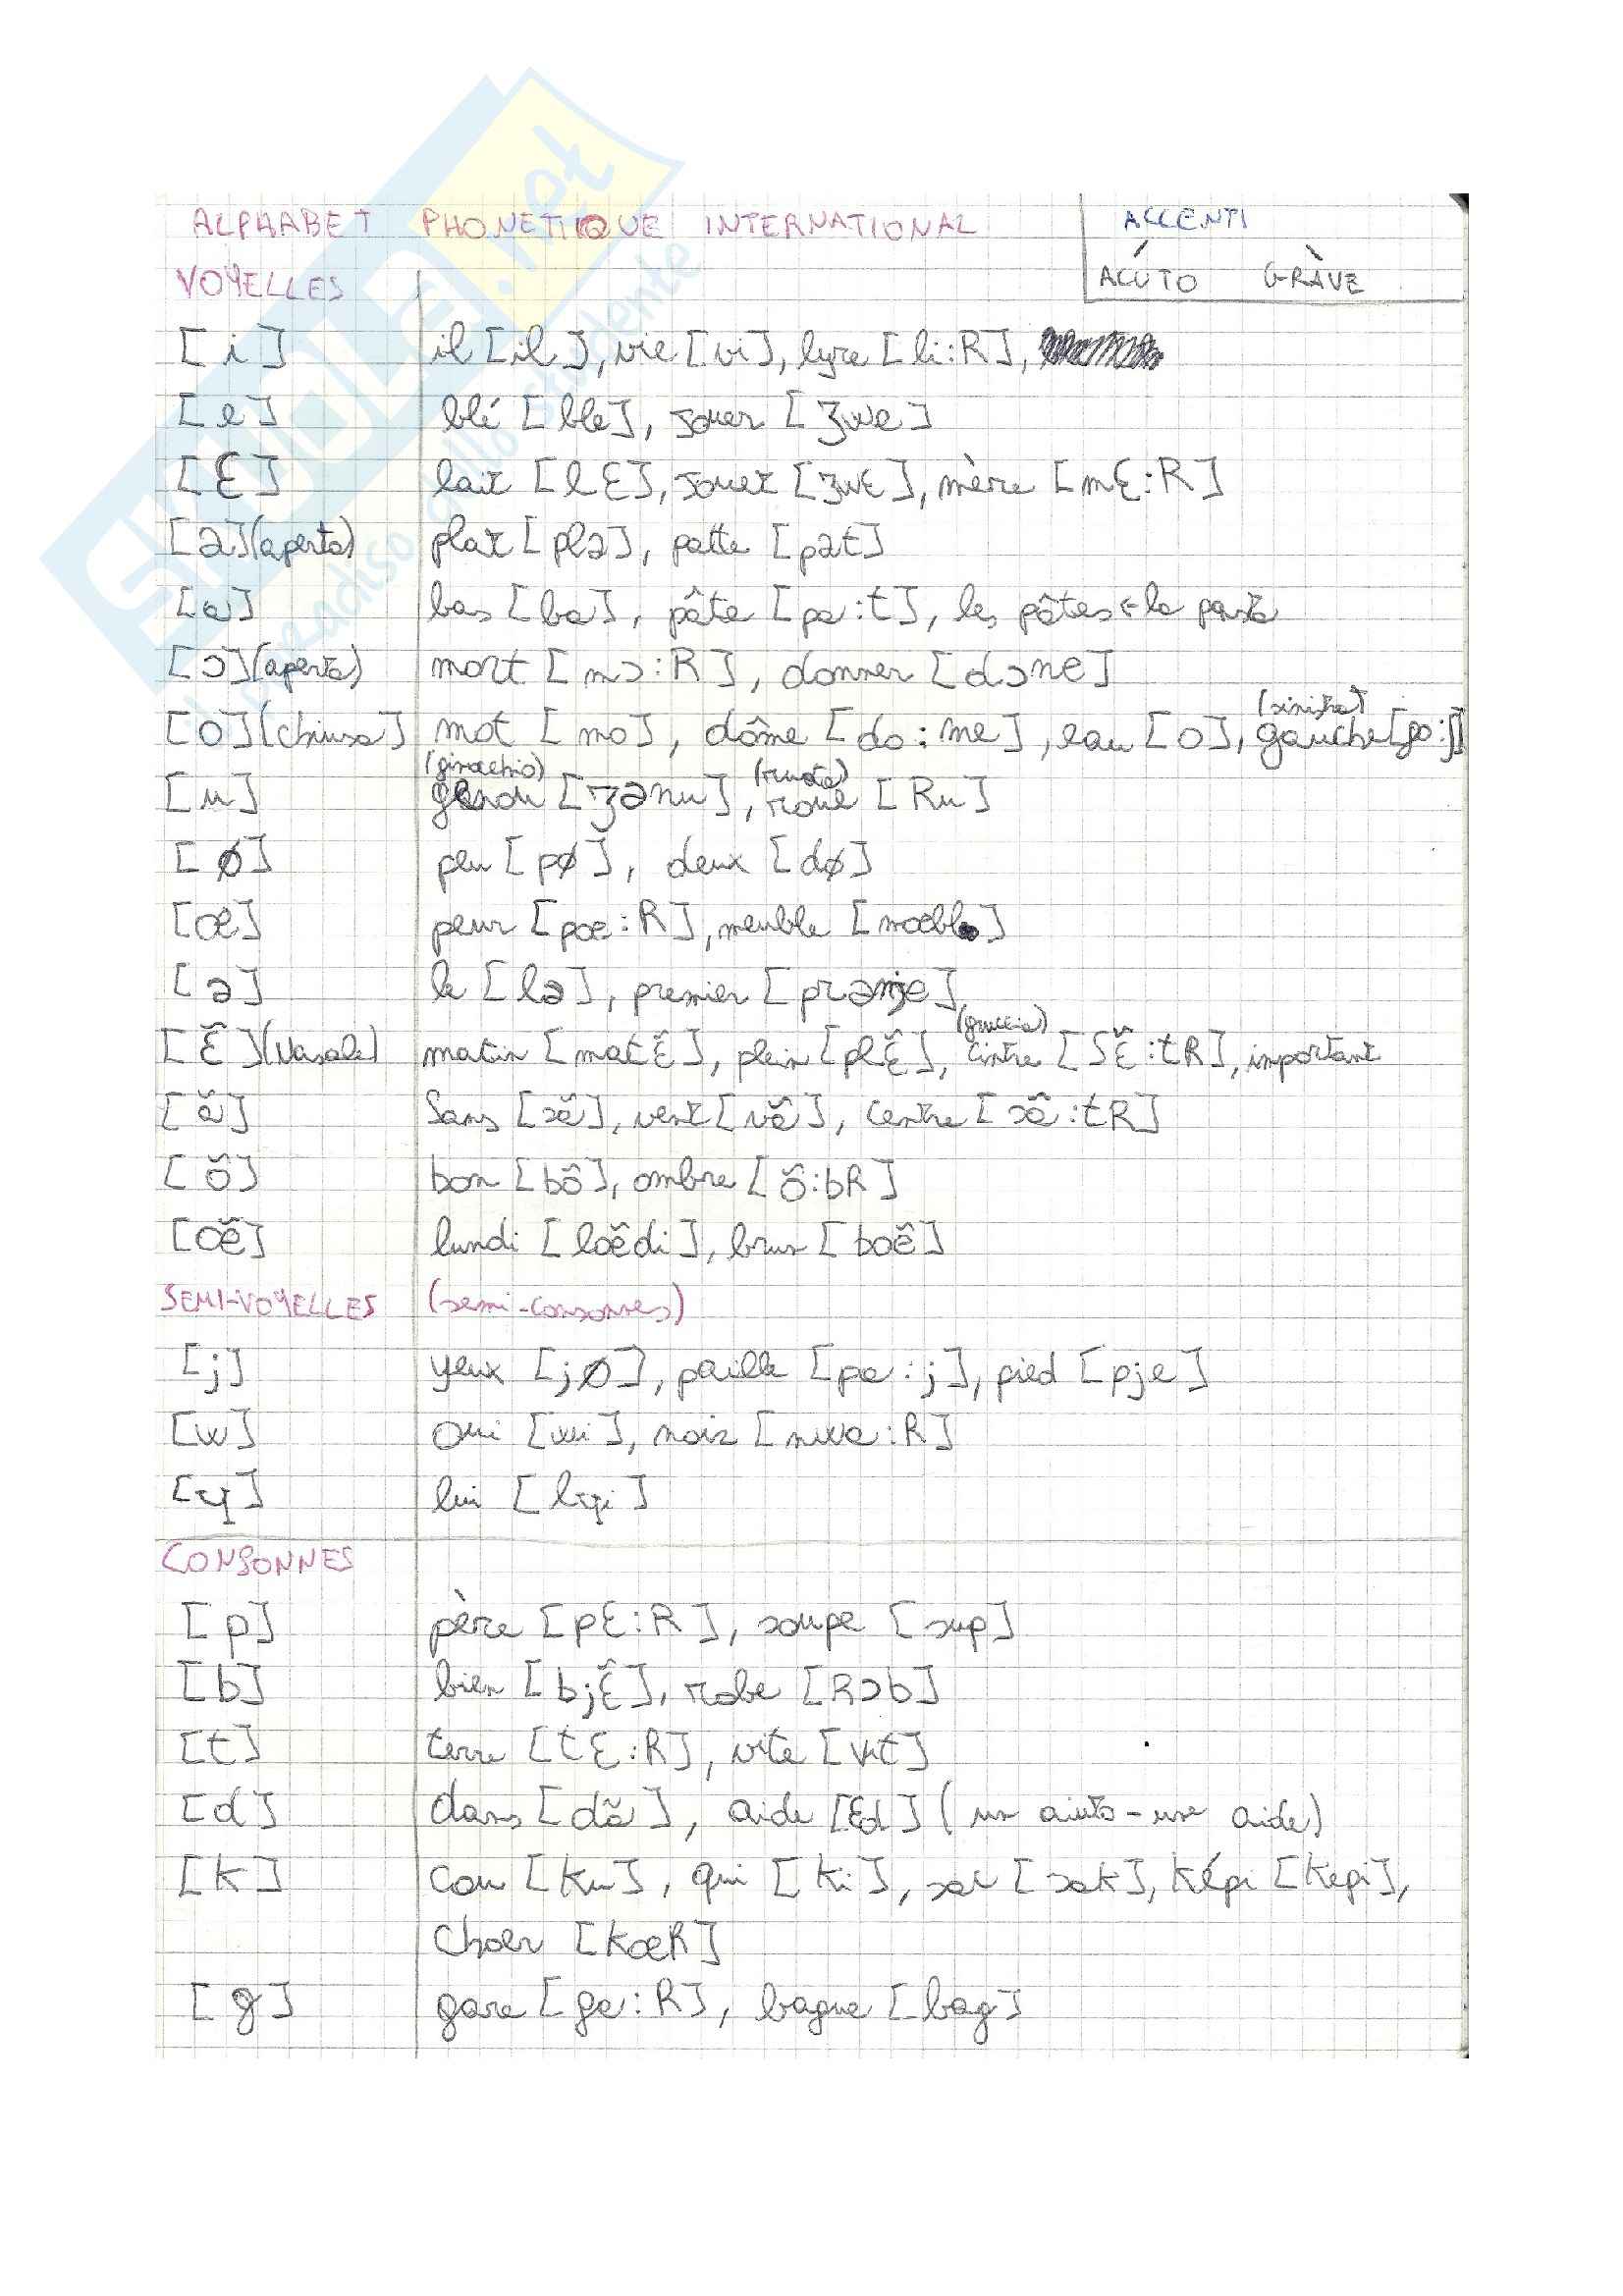 ALPHABET PHONETIQUE INTERNATIONAL
ACCENTI
ACÚTO GRÀVE
VOYELLES
[i] il [il], vie [vi], lyre [li:R],
[e] blé [ble], jouer [ʒwe]
[Ɛ] lait [lƐ], jouet [ʒwƐ], mère [mƐ:R]
[a] (aperta) plat [pla], patte [pat]
[ɑ] bas [bɑ], pâte [pɑ:t], les pâtes = la pasta
[ɔ] (aperta) mort [mɔ:R], donner [dɔne]
(sinistra)
[o] (chiusa) mot [mo], dôme [do:me], eau [o], gauche [go:ʃ]
(ginocchio) (ruota)
[u] genou [ʒənu], roue [Ru]
[ø] peu [pø], deux [dø]
[œ] peur [pœ:R], meuble [mœbl]
[ə] le [lə], premier [prəmje],
(gruccia)
[Ɛ̃] (Nasale) matin [matƐ̃], plein [plƐ̃], cintre [SƐ̃:tR], important
[ɑ̃] Sans [sɑ̃], vent [vɑ̃], centre [sɑ̃:tR]
[õ] bon [bõ], ombre [õ:bR]
[œ̃] lundi [lœ̃di], brun [bœ̃]
SEMI-VOYELLES (semi-consonnes)
[j] yeux [jø], paille [pa:j], pied [pje]
[w] oui [wi], noir [nwa:R]
[ɥ] lui [lɥi]
CONSONNES
[p] père [pƐ:R], soupe [sup]
[b] bien [bjƐ̃], robe [Rɔb]
[t] terre [tƐ:R], vite [vit]
[d] dans [dɑ̃], aide [Ɛd] (un aiuto - une aide)
[k] cou [ku], qui [ki], sac [sak], képi [kepi],
Choer [kœR]
[g] gare [ga:R], bague [bag]